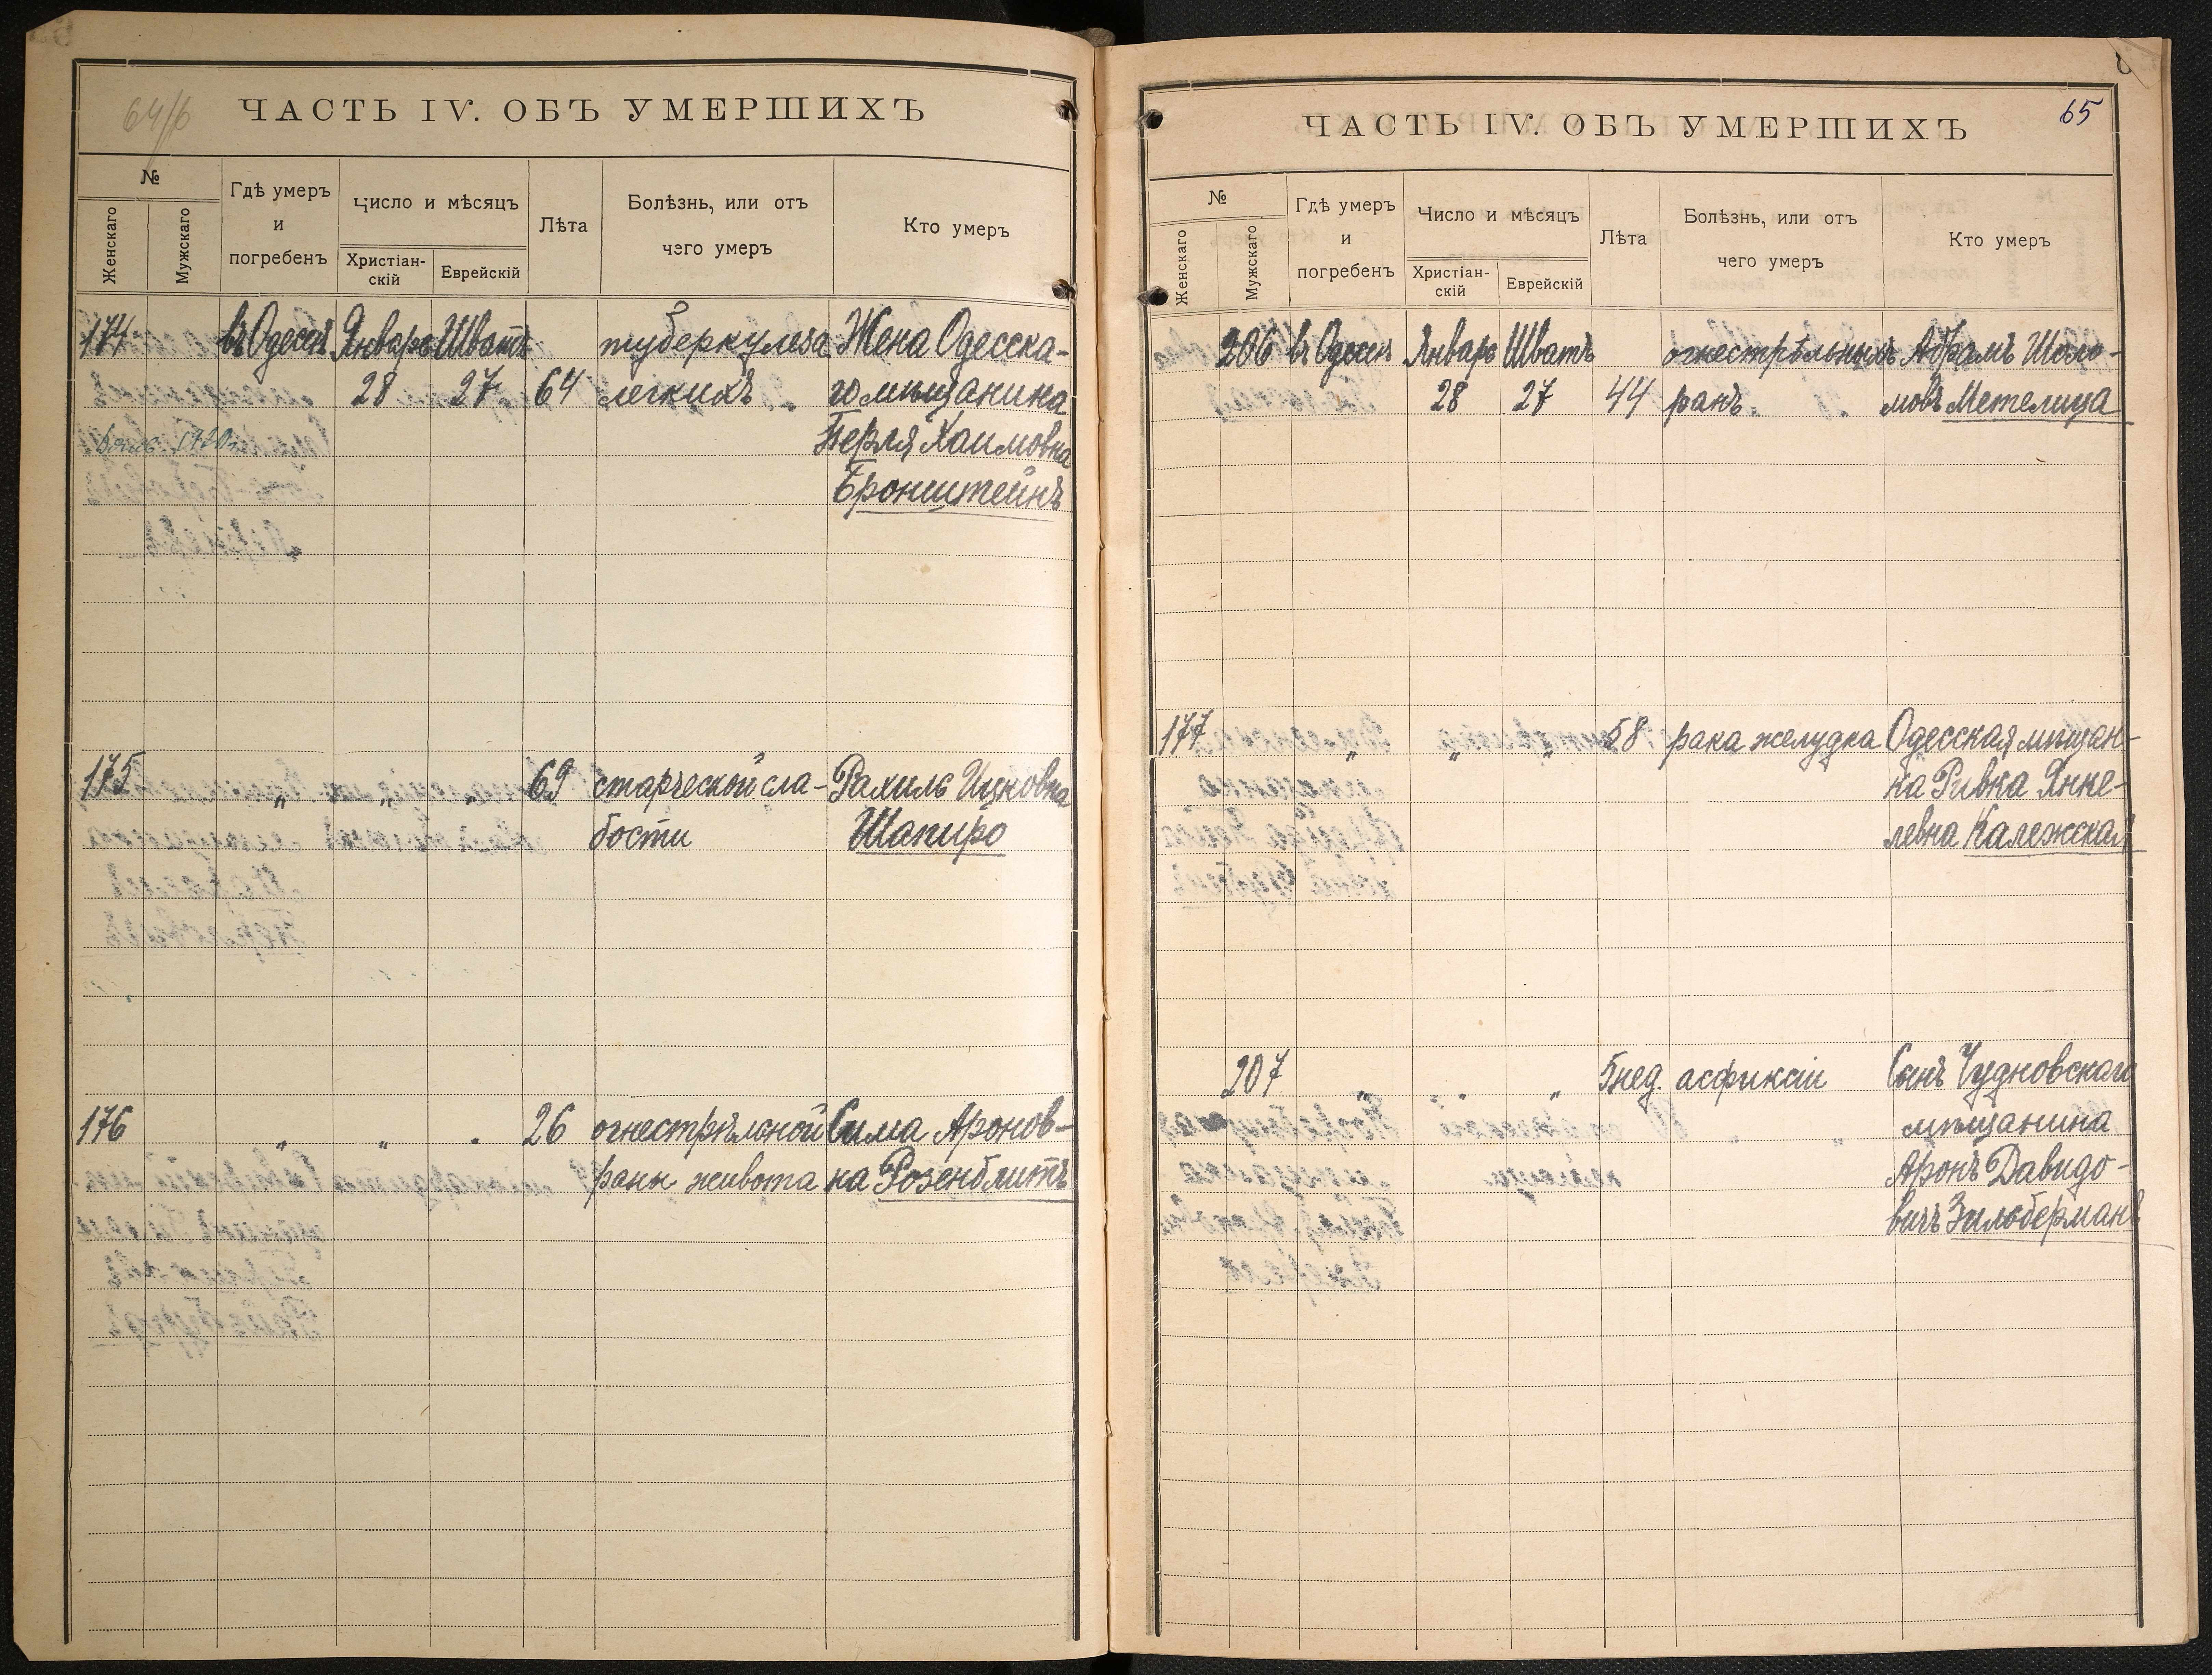 64/б
ЧАСТЬ IV. ОБЪ УМЕРШИХЪ
№
Женскаго
Мужскаго
Гдѣ умеръ
и
погребенъ
Число и мѣсяцъ
Христіан-
скій
Еврейскій
Лѣта
Болѣзнь, или отъ
чего умеръ
Кто умеръ
174 въ Одессѣ Январь Шватъ туберкулеза Жена Одесска-
28 27 64 легкихъ го мѣщанина
Перля Хаимовна
Бронштейнъ
175 " " " 69 старческой сла- Рахиль Ицковна
бости Шапиро
176 " " " 26 огнестрѣльной Сима Аронов-
раны живота на Розенблитъ
65
ЧАСТЬ IV. ОБЪ УМЕРШИХЪ
№
Женскаго
Мужскаго
Гдѣ умеръ
и
погребенъ
Число и мѣсяцъ
Христіан-
скій
Еврейскій
Лѣта
Болѣзнь, или отъ
чего умеръ
Кто умеръ
206 въ Одессѣ Январь Шватъ огнестрѣльныхъ Абрамъ Шоло-
28 27 44 ранъ. мовъ Метелица
177 " " " 58 рака желудка Одесская мѣщан-
ка Ривка Янке-
левна Калежская
207 " " " 5 нед. асфиксіи Сынъ Чудновскаго
мѣщанина
Аронъ Давидо-
вичъ Зильберманъ